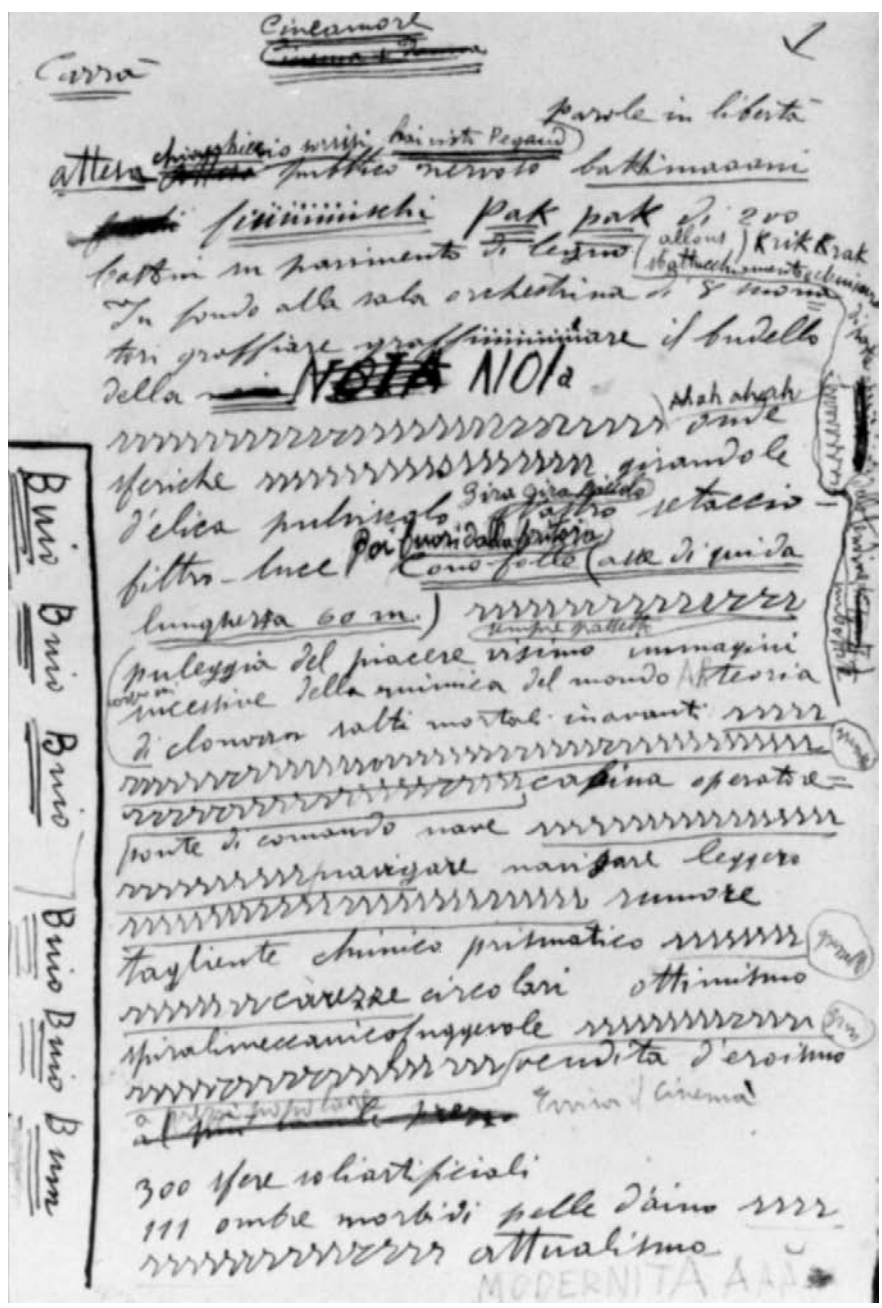 Cineamore
Cinema e Donna
Carrà
parole in libertà
attesa pubblico nervoso battimaaani
fiiiiiiiischi Pak pak di 200
bastoni su pavimento di legno (allons) KrikKrak
In fondo alla sala orchestrina di 8 suona
tori graffiare graffiiiiiiiiiiare il budello
della NOIA NOIa
Ahah ahah
rrrrrrrrrrrrrrrrrrrrrrrrrrr onde
sferiche rrrrrrrrrrrrrrrrr girandole
gira gira
d'elica pulviscolo astro setaccio
Poi fuori dalla
filtro-luce Cono-folle (asse di guida
lunghezza 60 m.) rrrrrrrrrrrrrrrrr
puleggia del piacere visivo immagini
successive della mimica del mondo teoria
di clowns salti mortali inavanti rrrrr
rrrrrrrrrrrrrrrrrrrrrrrrrrrrrrrrr
rrrrrrrrrrrrrrrrrrr cabina operatore=
ponte di comando nave rrrrrrrrrrrrrrr
rrrrrrrrrr navigare navigare leggero
rrrrrrrrrrrrrrrrrrrrrrr rumore
tagliente chimico prismatico rrrrrrr
rrrrrrr carezze circolari ottimismo
spiralimeccanicofuggevole rrrrrrrrrrr
rrrrrrrrrrrrrrrrrr vendita d'eroismo
a prezzi popolari Evviva il cinema
300 sfere soliartificiali
111 ombre morbidi pelle daino rrrr
rrrrrrrrrrrrrr attualismo
MODERNITÀ AAA
Buio Buio Buio Buio Buio Buio